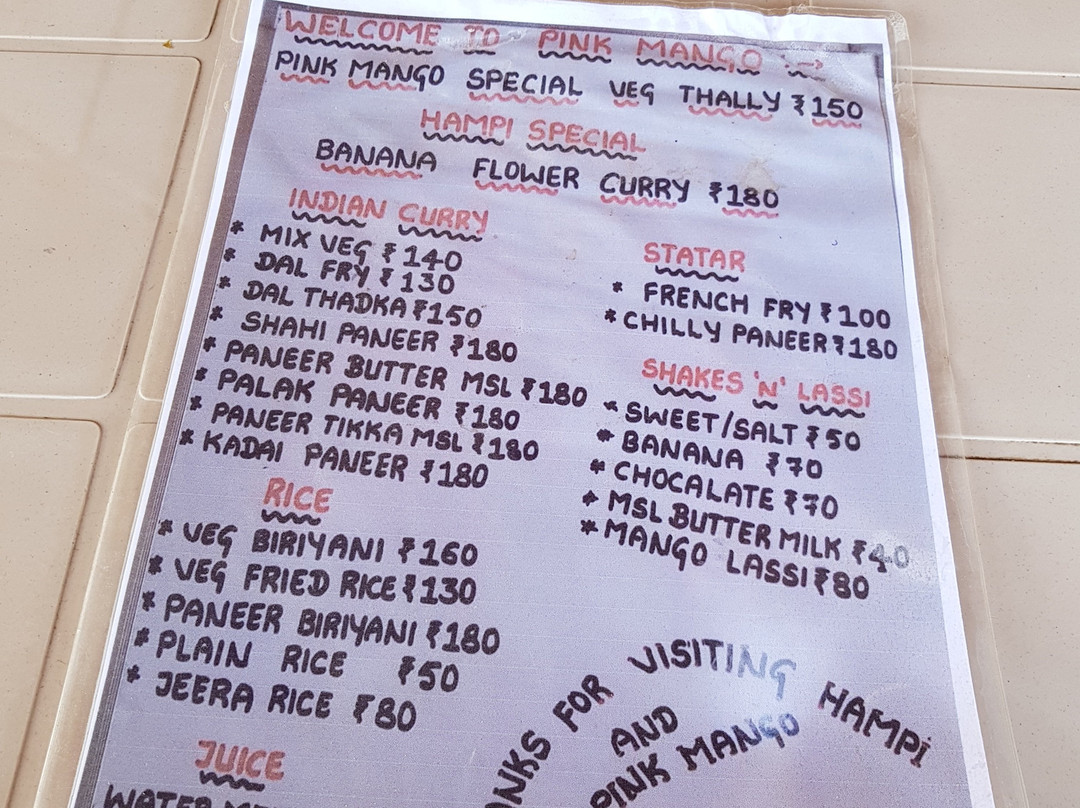 WELCOME TO PINK MANGO :→
PINK MANGO SPECIAL VEG THALLY ₹150
HAMPI SPECIAL
BANANA FLOWER CURRY ₹180
INDIAN CURRY
* MIX VEG ₹140
* DAL FRY ₹130
* DAL THADKA ₹150
* SHAHI PANEER ₹180
* PANEER BUTTER MSL ₹180
* PALAK PANEER ₹180
* PANEER TIKKA MSL ₹180
* KADAI PANEER ₹180
RICE
* VEG BIRIYANI ₹160
* VEG FRIED RICE ₹130
* PANEER BIRIYANI ₹180
* PLAIN RICE ₹50
* JEERA RICE ₹80
JUICE
STATAR
* FRENCH FRY ₹100
* CHILLY PANEER ₹180
SHAKES 'N' LASSI
* SWEET/SALT ₹50
* BANANA ₹70
* CHOCALATE ₹70
* MSL BUTTER MILK ₹40
* MANGO LASSI ₹80
FOR VISITING HAMPI
AND
PINK MANGO